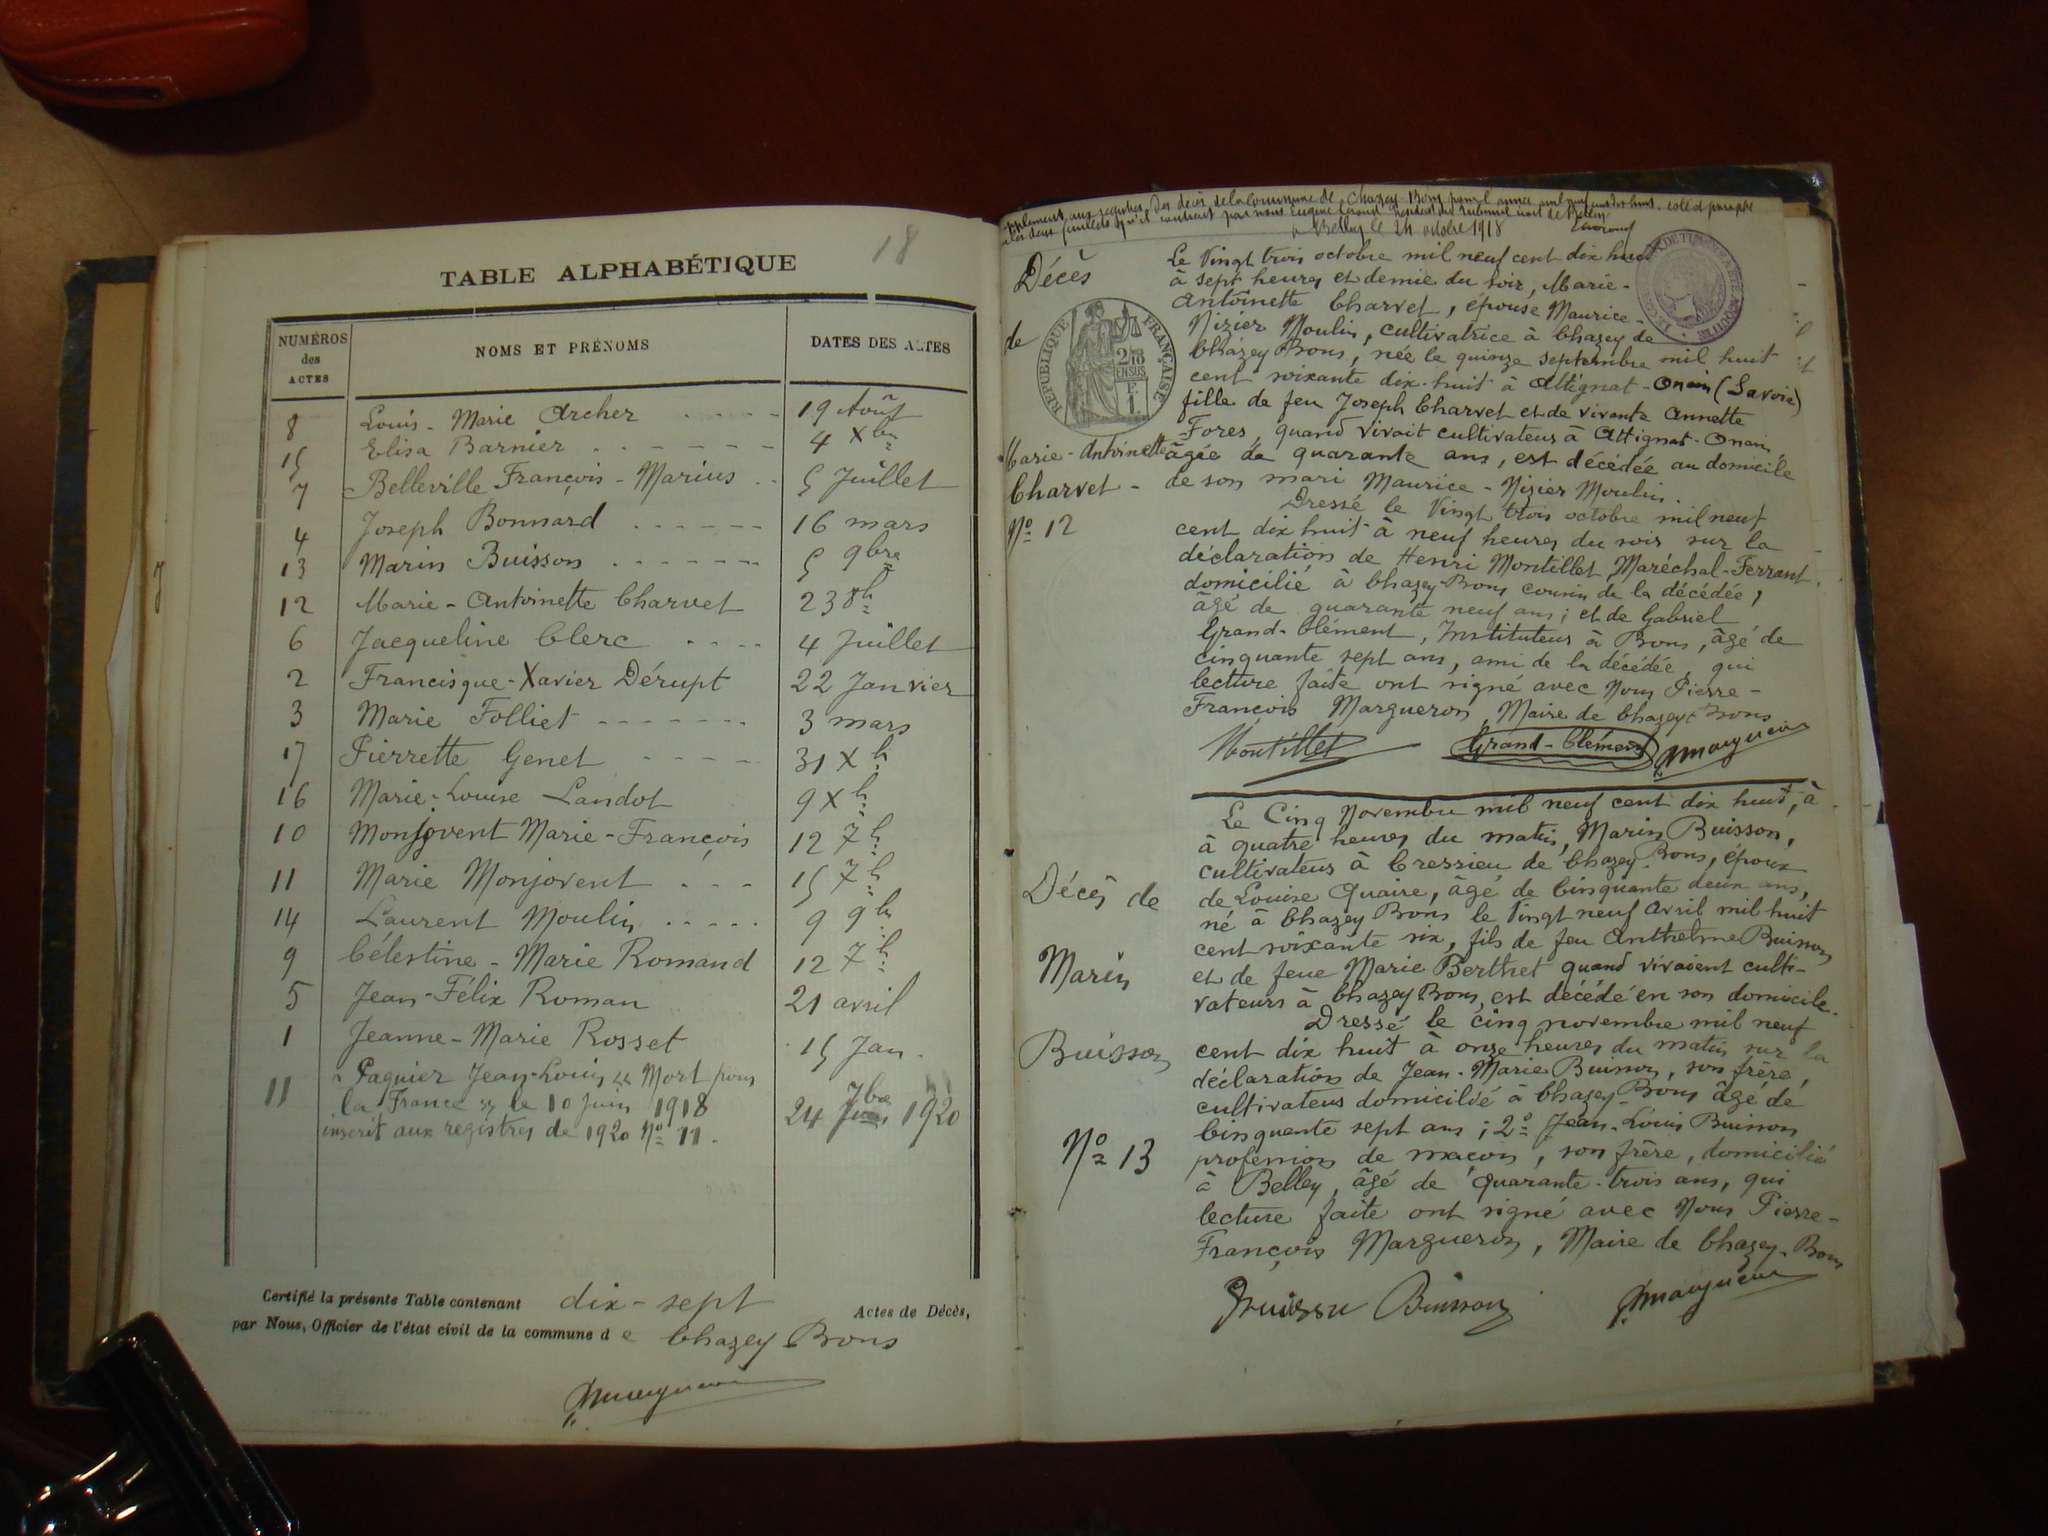 18
TABLE ALPHABÉTIQUE
NUMÉROS des ACTES
NOMS ET PRÉNOMS
DATES DES ACTES
8 Louis-Marie Archer 19 Août
15 Elisa Barnier 4 Xbre
7 Belleville François-Marius 5 Juillet
4 Joseph Bonnard 16 mars
13 Marin Buisson 5 9bre
12 Marie-Antoinette Charvet 23 8b
6 Jacqueline Clerc 4 Juillet
2 Francisque-Xavier Dérupt 22 Janvier
3 Marie Folliet 3 mars
17 Pierrette Genet 31 Xb
16 Marie-Louise Landot 9 Xb
10 Monjovent Marie-François 12 7b
11 Marie Monjovent 15 7b
14 Laurent Moulin 9 9b
9 Célestine-Marie Romand 12 7b
5 Jean-Félix Roman 21 avril
1 Jeanne-Marie Rosset 15 Jan.
Paquier Jean-Louis "Mort pour
11 la France" le 10 Juin 1918 24 7bre 1920
inscrit aux registres de 1920 No 11.
Certifié la présente Table contenant dix-sept Actes de Décès,
par Nous, Officier de l'état civil de la commune de Chazey Bons
aux registres des décès de la commune de Chazey-Bons pour l'année mil neuf cent dix huit. coté et paraphé
par nous Eugène Président du Tribunal civil de Belley
à Belley le 24 octobre 1918
Décès
de
Marie-Antoinette
Charvet -
No 12
RÉPUBLIQUE FRANÇAISE
2/10 EN SUS
1 F
Le Vingt trois octobre mil neuf cent dix huit
à sept heures et demie du soir, Marie-
Antoinette Charvet, épouse Maurice-
Nizier Moulin, cultivatrice à Chazey de
Chazey Bons, née le quinze septembre mil huit
cent soixante dix-huit à Attignat-Onein (Savoie)
fille de feu Joseph Charvet et de vivante Annette
Fores, quand vivait cultivateur à Attignat-Onein,
âgée de quarante ans, est décédée au domicile
de son mari Maurice-Nizier Moulin.
Dressé le Vingt trois octobre mil neuf
cent dix huit à neuf heures du soir sur la
déclaration de Henri Montillet, Maréchal-Ferrant,
domicilié à Chazey-Bons cousin de la décédée,
âgé de quarante neuf ans; et de Gabriel
Grand-Clément, Instituteur à Bons, âgé de
cinquante sept ans, ami de la décédée, qui
lecture faite ont signé avec Nous Pierre-
François Margueron, Maire de Chazey-Bons
Montillet Grand-Clément Margueron
Décès de
Marin
Buisson
No 13
Le Cinq Novembre mil neuf cent dix huit, à
à quatre heures du matin, Marin Buisson,
cultivateur à Cressieu de Chazey-Bons, époux
de Louise Quaire, âgé de Cinquante deux ans,
né à Chazey Bons le Vingt neuf Avril mil huit
cent soixante six, fils de feu Anthelme Buisson
et de feue Marie Berthet quand vivaient culti-
vateurs à Chazey Bons, est décédé en son domicile.
Dressé le cinq novembre mil neuf
cent dix huit à onze heures du matin sur la
déclaration de Jean-Marie Buisson, son frère,
cultivateur domicilié à Chazey-Bons âgé de
Cinquante sept ans; 2o Jean-Louis Buisson
profession de maçon, son frère, domicilié
à Belley, âgé de quarante-trois ans, qui
lecture faite ont signé avec Nous Pierre-
François Margueron, Maire de Chazey-Bons
Buisson Margueron